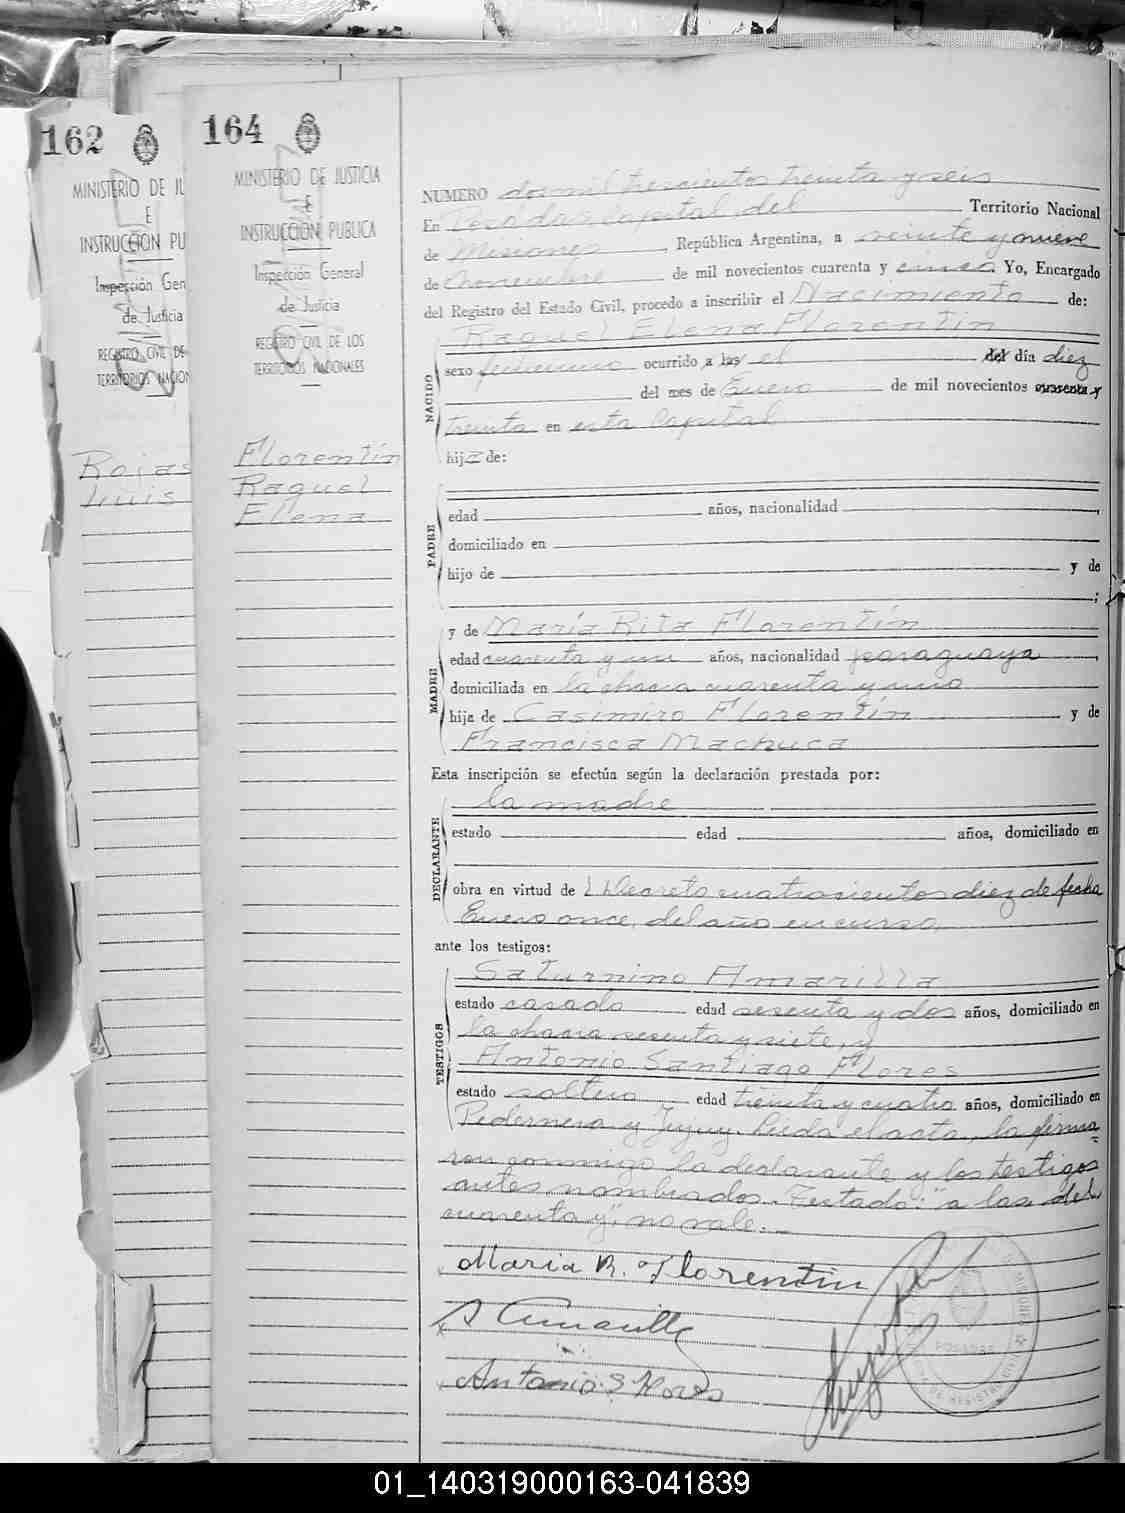 162
MINISTERIO DE JU
E
INSTRUCCION PU
Inspección Gen
de Justicia
REGISTRO CIVIL DE
TERRITORIOS NACION
Rojas
Luis
164
MINISTERIO DE JUSTICIA
E
INSTRUCCION PUBLICA
Inspección General
de Justicia
REGISTRO CIVIL DE LOS
TERRITORIOS NACIONALES
Florentín
Raquel
Elena
NUMERO dos mil trescientos treinta y seis
En Posadas Capital del Territorio Nacional
de Misiones, República Argentina, a veinte y nueve
de Noviembre de mil novecientos cuarenta y cinco Yo, Encargado
del Registro del Estado Civil, procedo a inscribir el Nacimiento de:
Raquel Elena Florentín
NACIDO
sexo femenino ocurrido a las el del día diez
del mes de Enero de mil novecientos cuarenta y
treinta en esta Capital
hija de:
PADRE
edad años, nacionalidad ,
domiciliado en
hijo de y de
;
MADRE
y de María Rita Florentín
edad cuarenta y un años, nacionalidad paraguaya,
domiciliada en la chacra cuarenta y uno
hija de Casimiro Florentín y de
Francisca Machuca
Esta inscripción se efectúa según la declaración prestada por:
DECLARANTE
la madre
estado edad años, domiciliado en
obra en virtud de l Decreto cuatrocientos diez de fecha
Enero once, del año en curso,
ante los testigos:
TESTIGOS
Saturnino Amarilla
estado casado edad sesenta y dos años, domiciliado en
la chacra sesenta y siete, y
Antonio Santiago Flores
estado soltero edad treinta y cuatro años, domiciliado en
Pedernera y Jujuy. Leída el acta, la firma
ron conmigo la declarante y los testigos
antes nombrados. Testado: "a las del
cuarenta y", no vale.
Maria R. Florentin
S Amarilla
Antonio S Flores
MISIONES
POSADAS
01_140319000163-041839